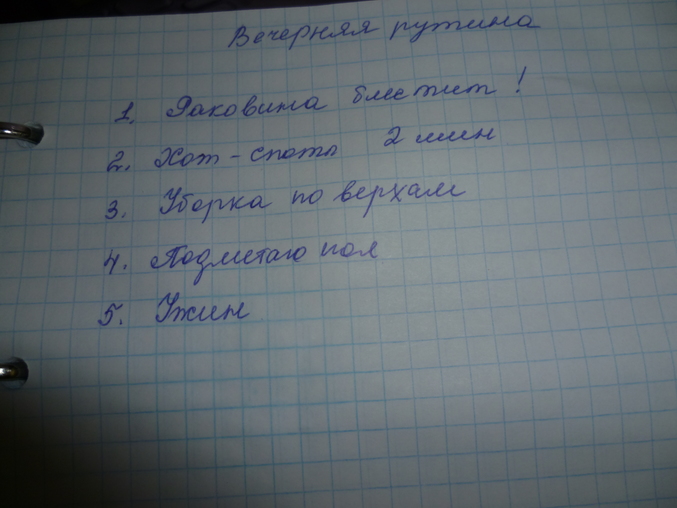 Вечерняя рутина
1. Раковина блестит!
2. Хот-споты 2 мин
3. Уборка по верхам
4. Подметаю пол
5. Ужин